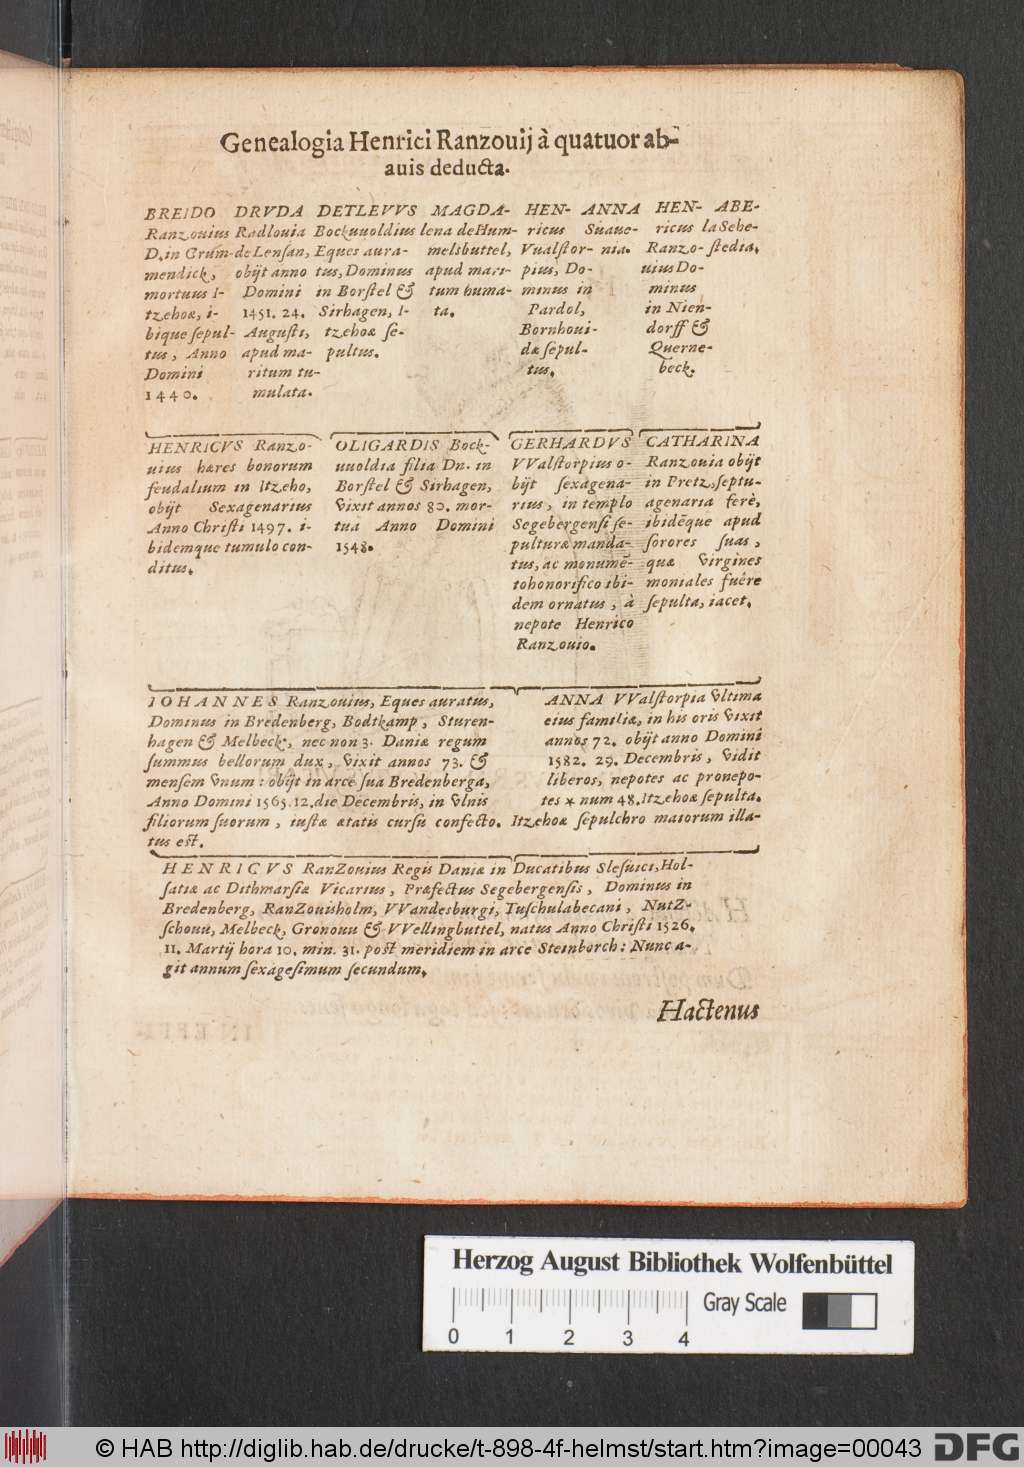 Genealogia Henrici Ranzouij à quatuor ab-
auis deducta.
BREIDO
Ranzouius
D. in Grum-
mendick,
mortuus I-
tzehoæ, i-
bique sepul-
tus, Anno
Domini
1440.
DRVDA
Radlouia
de Lensan,
obijt anno
Domini
1451. 24.
Augusti,
apud ma-
ritum tu-
mulata.
DETLEVVS
Bockuuoldius
Eques aura-
tus, Dominus
in Borstel &
Sirhagen, I-
tzehoæ se-
pultus.
MAGDA-
lena de Hum-
melsbuttel,
apud mari-
tum huma-
ta.
HEN-
ricus
Vualstor-
pius, Do-
minus in
Pardol,
Bornhoui-
dæ sepul-
tus.
ANNA
Suaue-
nia.
HEN-
ricus
Ranzo-
uius Do-
minus
in Nien-
dorff &
Querne-
beck.
ABE-
la Sehe-
stedia.
HENRICVS Ranzo-
uius hæres bonorum
feudalium in Itzeho,
obijt Sexagenarius
Anno Christi 1497. i-
bidemque tumulo con-
ditus.
OLIGARDIS Bock-
uuoldia filia Dn. in
Borstel & Sirhagen,
vixit annos 80. mor-
tua Anno Domini
1548.
GERHARDVS
VValstorpius o-
bijt sexagena-
rius, in templo
Segebergensi se-
pulturæ manda-
tus, ac monumē-
to honorifico ibi-
dem ornatus, à
nepote Henrico
Ranzouio.
CATHARINA
Ranzouia obijt
in Pretz, septu-
agenaria ferè,
ibidēque apud
sorores suas,
quæ virgines
moniales fuêre
sepulta, iacet.
IOHANNES Ranzouius, Eques auratus,
Dominus in Bredenberg, Bodtkamp, Sturen-
hagen & Melbeck, nec non 3. Daniæ regum
summus bellorum dux, vixit annos 73. &
mensem vnum: obijt in arce sua Bredenberga,
Anno Domini 1565. 12. die Decembris, in vlnis
filiorum suorum, iustæ ætatis cursu confecto. Itzehoæ sepulchro maiorum illa-
tus est.
ANNA VValstorpia vltima
eius familiæ, in his oris vixit
annos 72. obijt anno Domini
1582. 29. Decembris, vidit
liberos, nepotes ac pronepo-
tes * num 48. Itzehoæ sepulta.
HENRICVS RanZouius Regis Daniæ in Ducatibus Slesuici, Hol-
satiæ ac Dithmarsiæ Vicarius, Præfectus Segebergensis, Dominus in
Bredenberg, RanZouisholm, VVandesburgi, Tuschulabecani, NutZ-
schouu, Melbeck, Gronouu & VVellingbuttel, natus Anno Christi 1526.
11. Martij hora 10. min. 31. post meridiem in arce Steinborch: Nunc a-
git annum sexagesimum secundum.
Hactenus
Herzog August Bibliothek Wolfenbüttel
0 1 2 3 4
Gray Scale
© HAB http://diglib.hab.de/drucke/t-898-4f-helmst/start.htm?image=00043
DFG